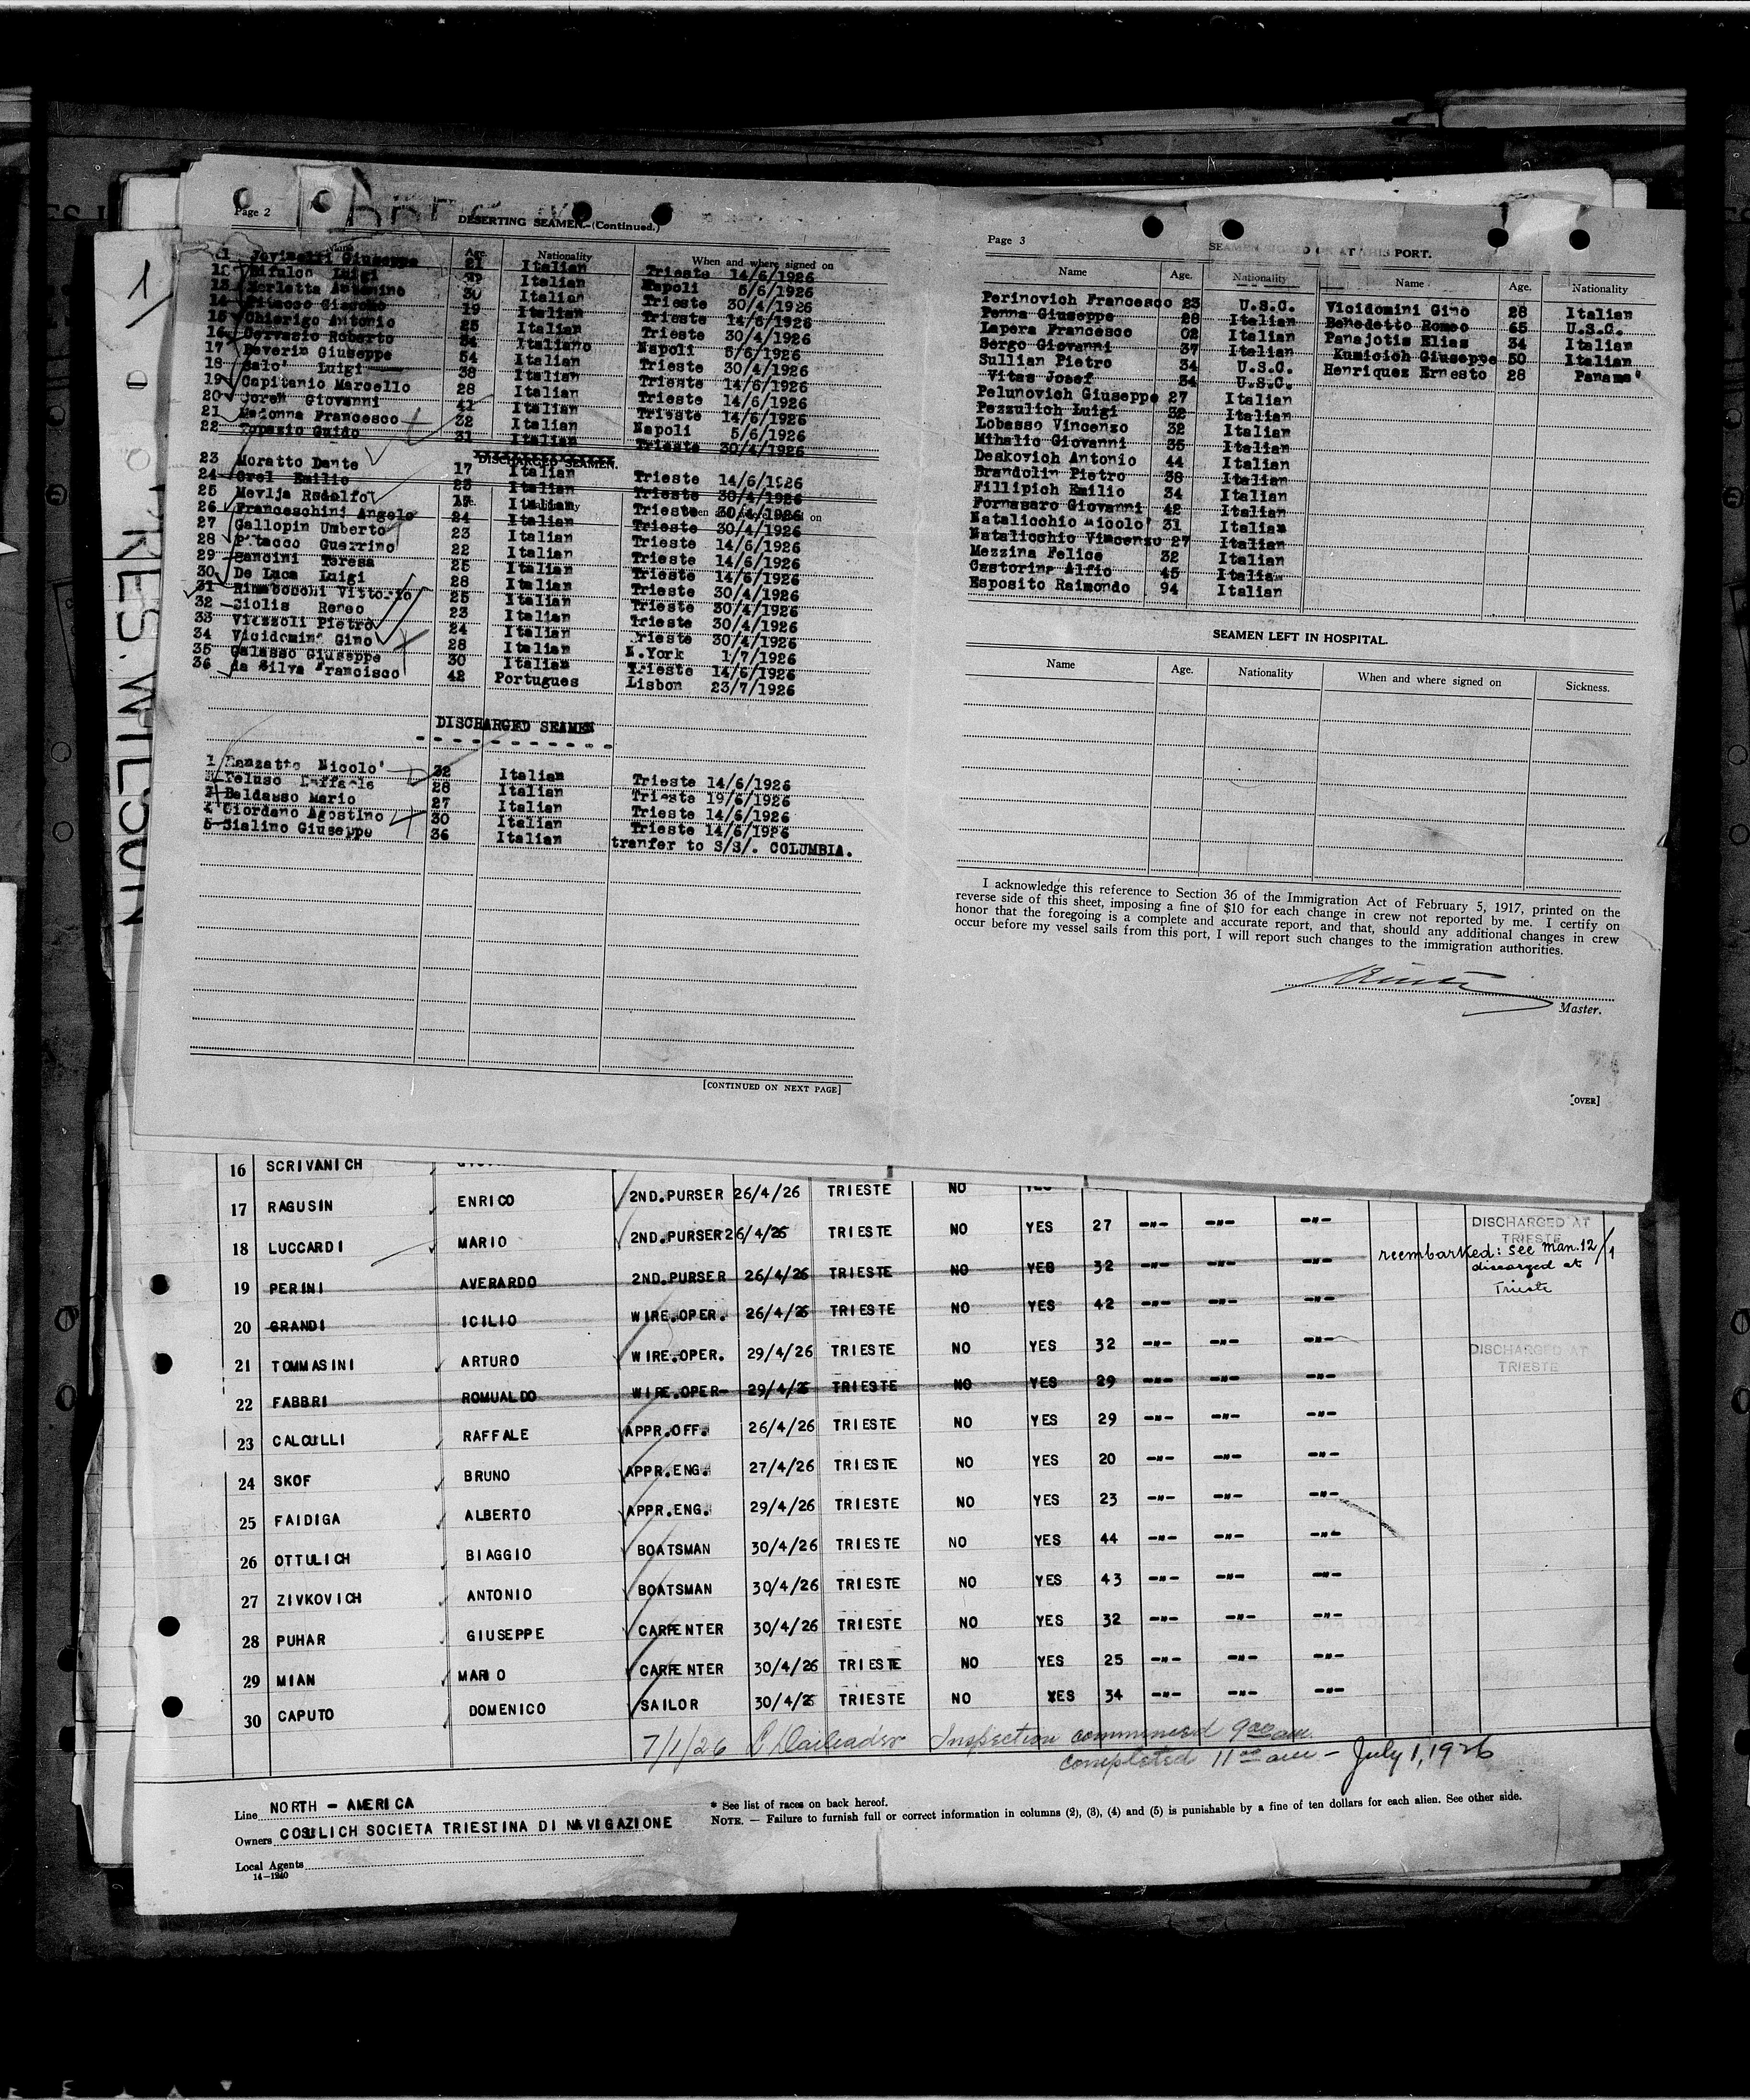 Page 2
DESERTING SEAMEN.-(Continued.)
Name Age. Nationality When and where signed on
Giuseppe 21 Italian Trieste 14/6/1926
Bifulco Luigi Italian Napoli 5/6/1926
13 30 Italian Trieste 30/4/1926
14 19 Italian Trieste 14/6/1926
15 Chierigo Antonio 25 Italian Trieste 30/4/1926
16 Gervasio Roberto 34 Italiano Napoli 5/6/1926
17 Severin Giuseppe 54 Italian Trieste 30/4/1926
18 Salo' Luigi 38 Italian Trieste 14/6/1926
19 Capitanio Marcello 28 Italian Trieste 14/6/1926
20 Giovanni 41 Italian Trieste 14/6/1926
21 Madonna Francesco 32 Italian Napoli 5/6/1926
22 Topazio Guido 31 Italian Trieste 30/4/1926
DISCHARGED SEAMEN.
23 Moratto Dante 17 Italian Trieste 14/6/1926
24 Orel Emilio 23 Italian Trieste 30/4/1926
25 Mevlja Rodolfo Italian Trieste 30/4/1926
26 Franceschini Angelo 24 Italian Trieste 30/4/1926
27 Gallopin Umberto 23 Italian Trieste 14/6/1926
28 Guerrino 22 Italian Trieste 14/6/1926
29 Sancini Teresa 25 Italian Trieste 14/6/1926
30 De Luca Luigi 28 Italian Trieste 30/4/1926
31 Vittorio 25 Italian Trieste 30/4/1926
32 Siolis Romeo 23 Italian Trieste 30/4/1926
33 Viezzoli Pietro 24 Italian Trieste 30/4/1926
34 Vicidomini Gino 28 Italian N.York 1/7/1926
35 Galasso Giuseppe 30 Italian Trieste 14/6/1926
36 da Silva Francisco 42 Portugues Lisbon 23/7/1926
DISCHARGED SEAMEN
1 Nicolo' 32 Italian Trieste 14/6/1926
2 Peluso Raffaele 28 Italian Trieste 19/6/1926
3 Baldasso Mario 27 Italian Trieste 14/6/1926
4 Giordano Agostino 30 Italian Trieste 14/6/1926
5 Sialino Giuseppe 36 Italian tranfer to S/S/. COLUMBIA.
[CONTINUED ON NEXT PAGE]
Page 3
SEAMEN SIGNED ON AT THIS PORT.
Name Age. Nationality Name Age. Nationality
Perinovich Francesco 23 U.S.C. Vicidomini Gino 28 Italian
Penna Giuseppe 28 Italian Benedetto Romeo 65 U.S.C.
Lapera Francesco 02 Italian Panajotis Elias 34 Italian
Sergo Giovanni 37 Italian Kumicich Giuseppe 50 Italian
Sullian Pietro 34 U.S.C. Henriquez Ernesto 28 Panama'
Vitas Josef 34 U.S.C.
Pelunovich Giuseppe 27 Italian
Pezzulich Luigi 32 Italian
Lobasso Vincenzo 32 Italian
Mihalic Giovanni 35 Italian
Deskovich Antonio 44 Italian
Brandolin Pietro 38 Italian
Fillipich Emilio 34 Italian
Fornasaro Giovanni 42 Italian
Natalicchio Nicolo' 31 Italian
Natalicchio Vincenzo 27 Italian
Mezzina Felice 32 Italian
Castorina Alfio 45 Italian
Esposito Raimondo 94 Italian
SEAMEN LEFT IN HOSPITAL.
Name Age. Nationality When and where signed on Sickness.
I acknowledge this reference to Section 36 of the Immigration Act of February 5, 1917, printed on the
reverse side of this sheet, imposing a fine of $10 for each change in crew not reported by me. I certify on
honor that the foregoing is a complete and accurate report, and that, should any additional changes in crew
occur before my vessel sails from this port, I will report such changes to the immigration authorities.
Master.
[OVER]
1/
RES. WILSON
16 SCRIVANICH
17 RAGUSIN ENRICO 2ND.PURSER 26/4/26 TRIESTE NO
18 LUCCARDI MARIO 2ND.PURSER 26/4/26 TRIESTE NO YES 27 -"- -"- -"- DISCHARGED AT TRIESTE
19 PERINI AVERARDO 2ND.PURSER 26/4/26 TRIESTE NO YES 32 -"- -"- -"- reembarked: see Man.12/1
discarged at
Trieste
20 GRANDI ICILIO WIRE.OPER. 26/4/26 TRIESTE NO YES 42 -"- -"- -"-
21 TOMMASINI ARTURO WIRE.OPER. 29/4/26 TRIESTE NO YES 32 -"- -"- -"- DISCHARGED AT TRIESTE
22 FABBRI ROMUALDO WIRE.OPER- 29/4/26 TRIESTE NO YES 29 -"- -"- -"-
23 CALCULLI RAFFALE APPR.OFF. 26/4/26 TRIESTE NO YES 29 -"- -"- -"-
24 SKOF BRUNO APPR.ENG. 27/4/26 TRIESTE NO YES 20 -"- -"- -"-
25 FAIDIGA ALBERTO APPR.ENG. 29/4/26 TRIESTE NO YES 23 -"- -"- -"-
26 OTTULICH BIAGGIO BOATSMAN 30/4/26 TRIESTE NO YES 44 -"- -"- -"-
27 ZIVKOVICH ANTONIO BOATSMAN 30/4/26 TRIESTE NO YES 43 -"- -"- -"-
28 PUHAR GIUSEPPE CARPENTER 30/4/26 TRIESTE NO YES 32 -"- -"- -"-
29 MIAN MARIO CARPENTER 30/4/26 TRIESTE NO YES 25 -"- -"- -"-
30 CAPUTO DOMENICO SAILOR 30/4/26 TRIESTE NO YES 34 -"- -"- -"-
7/1/26 Inspection commenced 9:00 am.
completed 11 00 am - July 1, 1926
Line NORTH - AMERICA
Owners COSULICH SOCIETA TRIESTINA DI NAVIGAZIONE
Local Agents
14-1240
* See list of races on back hereof.
NOTE. — Failure to furnish full or correct information in columns (2), (3), (4) and (5) is punishable by a fine of ten dollars for each alien. See other side.